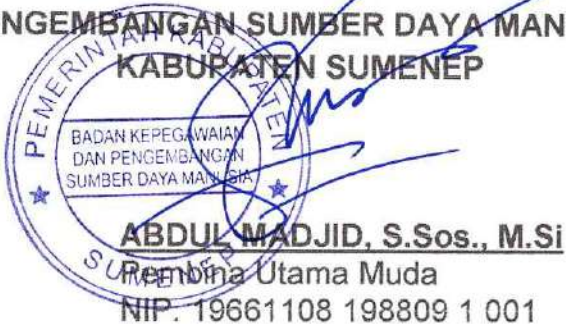 NGEMBANGAN SUMBER DAYA MAN
KABUPATEN SUMENEP
PEMERINTAH KABUPATEN
BADAN KEPEGAWAIAN
DAN PENGEMBANGAN
SUMBER DAYA MANUSIA
SUMENEP
ABDUL MADJID, S.Sos., M.Si
Pembina Utama Muda
NIP. 19661108 198809 1 001